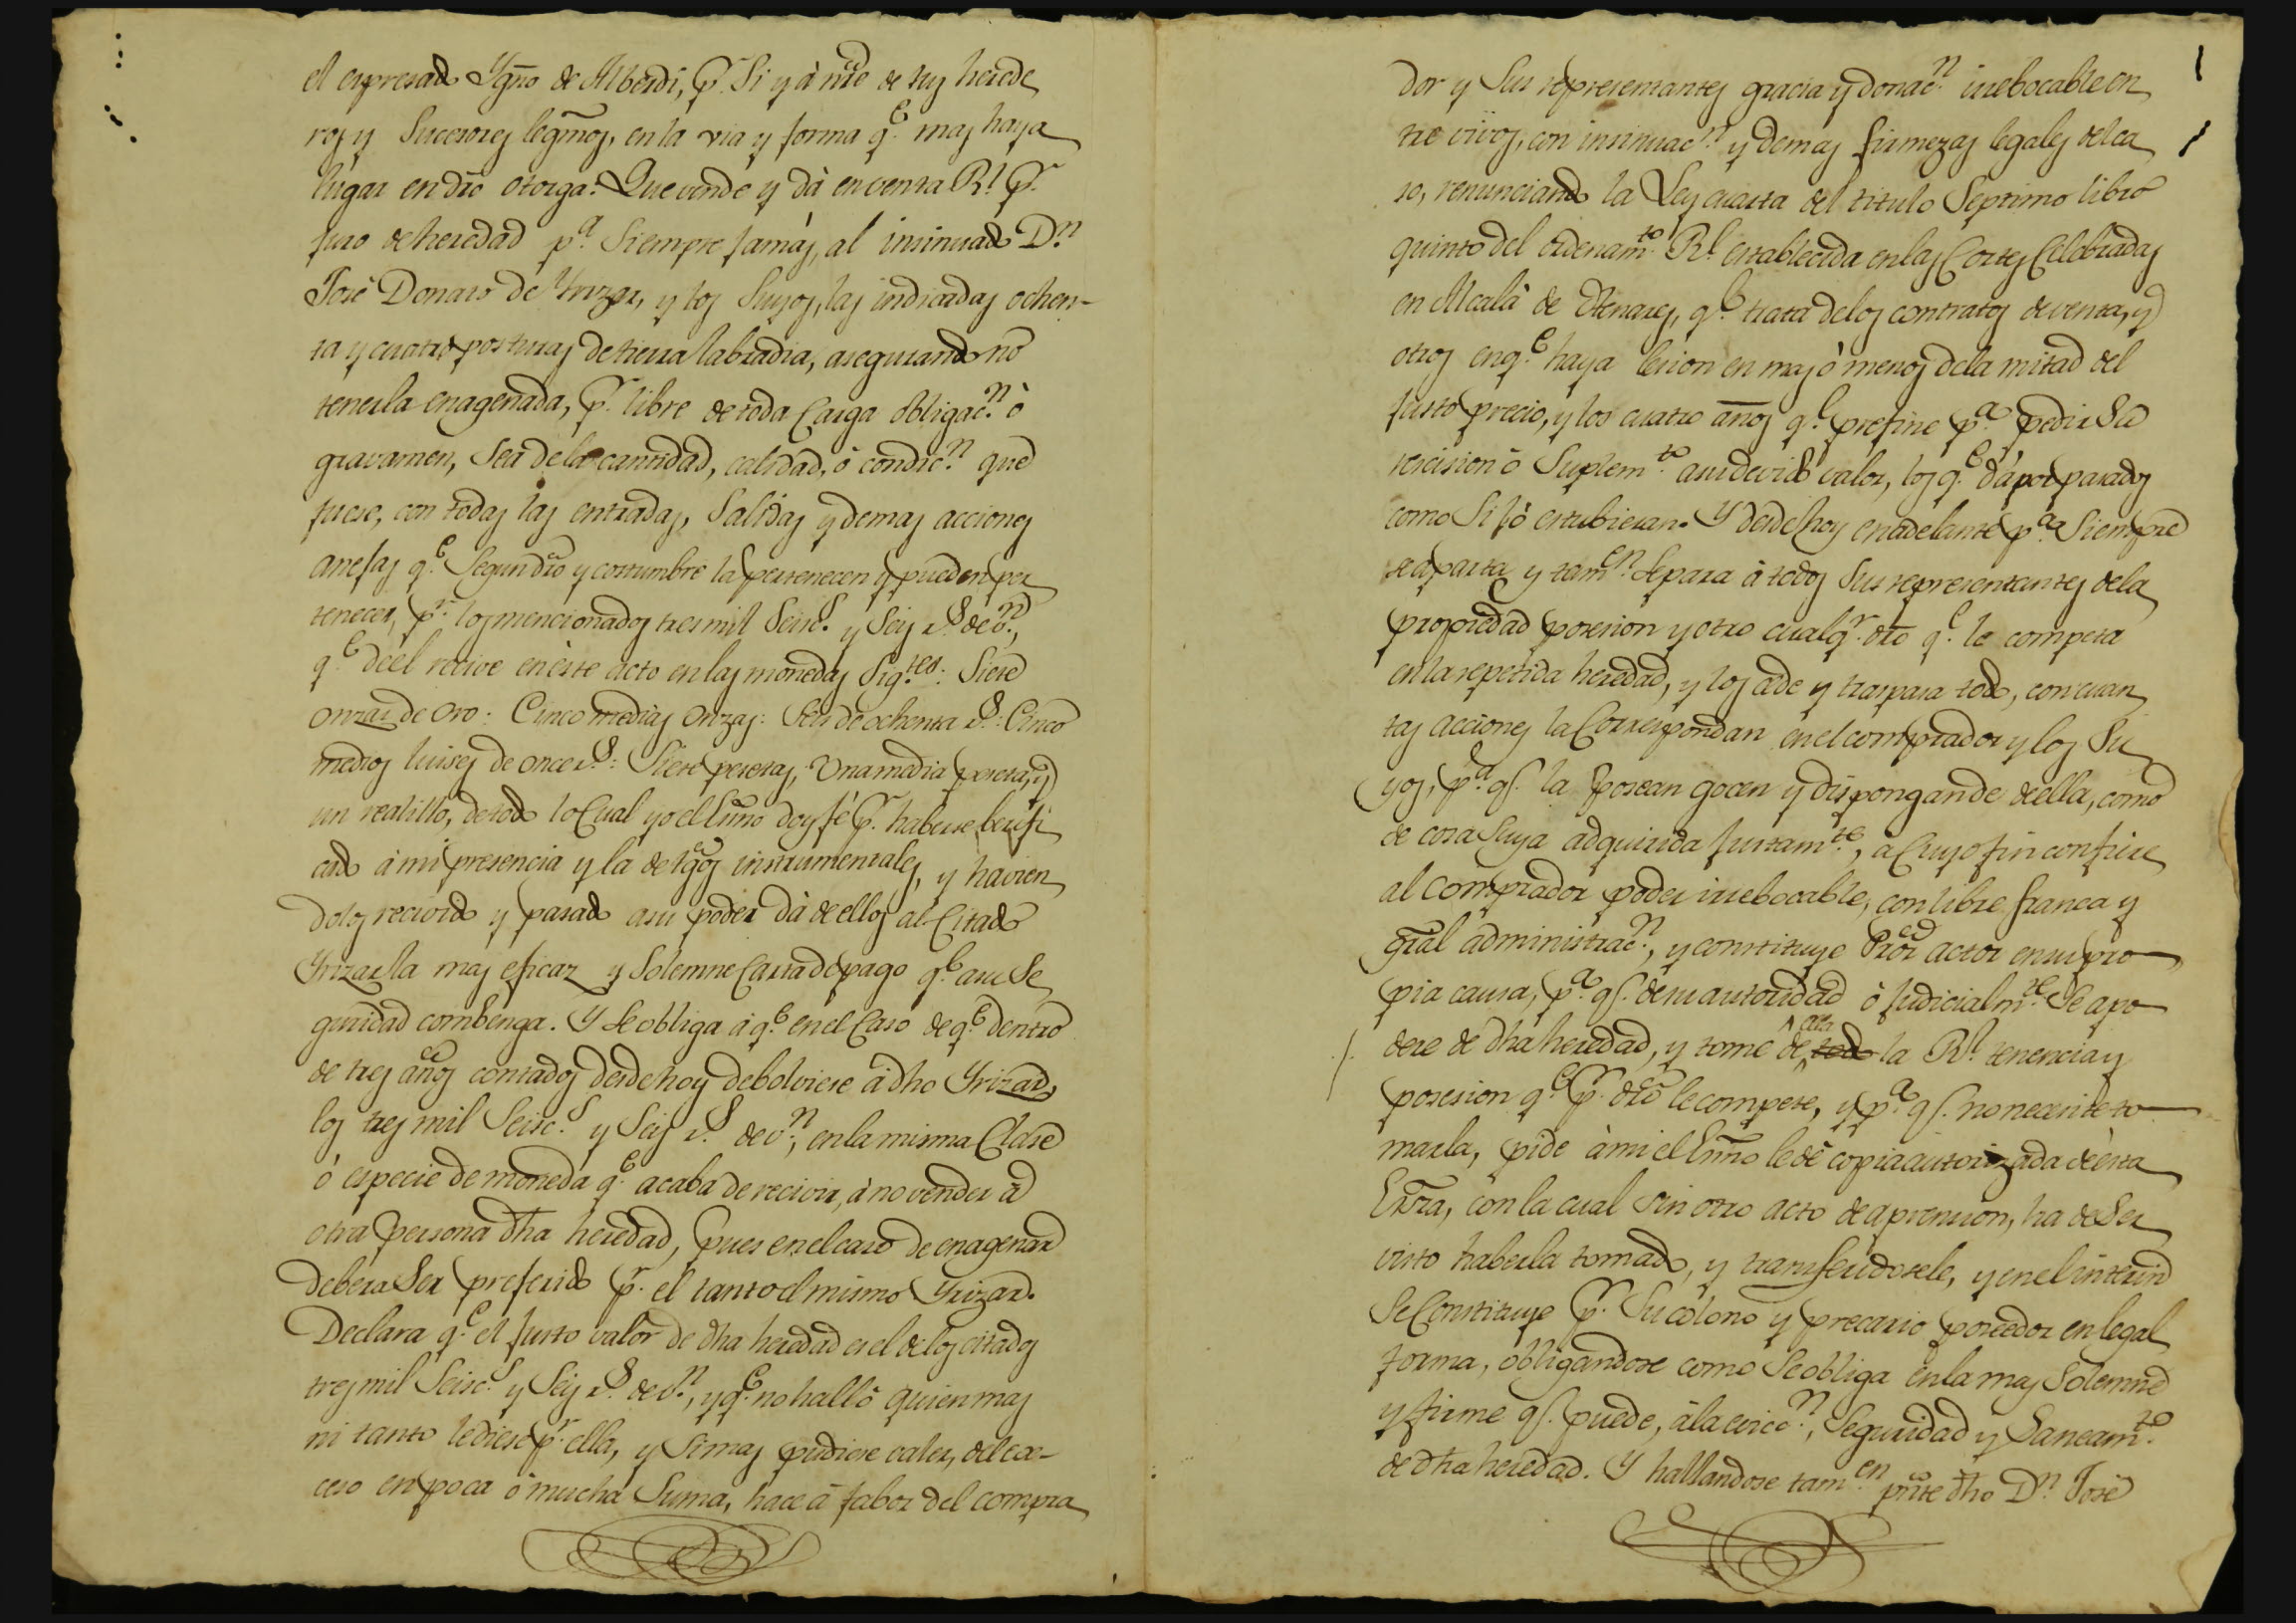 el expresado Ygno de Alberdi, pr. Si y à nre de sus herede
ros y Sucesores legmos, en la via y forma qe. mas haya
lugar en dro otorga: Que vende y dà en venta Rl. pr.
juro de heredad pa. Siempre jamás, al insinuado Dn.
José Donato de Yrizar, y los Suyos, las indicadas ochen-
ta y cuatro posturas de tierra labradia, asegurando no
tenerla enagenada, pr. libre de toda Carga obligacn. ò
gravamen, Sea de la cantidad, calidad, ò condicn. que
fuese, con todas las entradas, Salidas y demas acciones
anejas qe. Segun dro y costumbre la pertenecen y pueden per
tenecer, pr. los mencionados tres mil Seisc.s y Seis rs. de vn.,
qe. de el recive en èste acto en las monedas Sigtes: Siete
onzas de oro: Cinco medias onzas: Seis de ochenta rs.: Cinco
medios luises de once rs.: Siete pesetas, Una media peseta, y
un realillo, de todo lo Cual yo el Esnno doy fé pr. haberse berifi
cado à mi presencia y la de tgos instrumentales, y havien
dolos recivido y pasado a su poder dà de ellos al Citado
Yrizar la mas eficaz y Solemne Carta de pago qe. a su Se
guridad combenga. Y Se obliga à qe. en el Caso de qe. dentro
de tres años contados desde hoy debolviere à dho Yrizar,
los tres mil Seisc.s y Seis rs. de vn., en la misma Clase
ò especie de moneda qe. acaba de recivir, à no vender à
otra persona dha heredad, pues en el caso de enagenar
deberà Ser preferido pr. el tanto el mismo Yrizar.
Declara qe. el justo valor de dha heredad es el de los citados
tres mil Seisc.s y Seis rs. de vn., y qe. no halló quien mas
ni tanto le diese pr. ella, y Si mas pudiere valer, del ex-
ceso en poca ò mucha Suma, hace à fabor del compra
dor y Sus representantes gracia y donacn. irrebocable en
tre vivos, con insinuacn. y demas firmezas legales del ca
so, renunciando la Ley cuarta del titulo Septimo libro
quinto del ordenamto. Rl. establecida en las Cortes Celebradas
en Alcalà de Henares, qe. trata de los contratos de venta, y
otros en qe. haya lesion en mas ò menos de la mitad del
justo precio, y los cuatro años qe. prefine pa. pedir Su
rescision ò Suplemto. a su devido valor, los qe. dà por pasados
como Si lo estubieran. Y desde hoy en adelante pa. Siempre
se aparta y tamen. Separa à todos Sus representantes de la
propiedad posesion y otro cualqr. dro qe. le competa
en la repetida heredad, y los cede y traspasa todo, con cuan
tas acciones la Correspondan en el comprador y los Su
yos, pa. qe. la posean gocen y dispongan de de ella, como
de cosa Suya adquirida justamte., à Cuyo fin confiere
al comprador poder irrebocable, con libre franca y
gral administracn., y constituye Pror actor en su pro
pia causa, pa. qe. de su autoridad ò judicialmte. Se apo
dere de dha heredad, y tome de ella todo la Rl. tenencia y
posesion qe. pr. dro le compete, y pa. qe. no necesite to
marla, pide à mi el Esnno le dè copia autorizada de èsta
Esrra, con la cual Sin otro acto de aprension, ha de Ser
visto haberla tomado, y transferidosele, y en el interin
Se Constituye pr. Su colono y precario poseedor en legal
forma, obligandose como Se obliga en la mas Solemne
y firme qe. puede, à la eviccn., Seguridad y Saneamto.
de dha heredad. Y hallandose tamen. pnte dho Dn. José